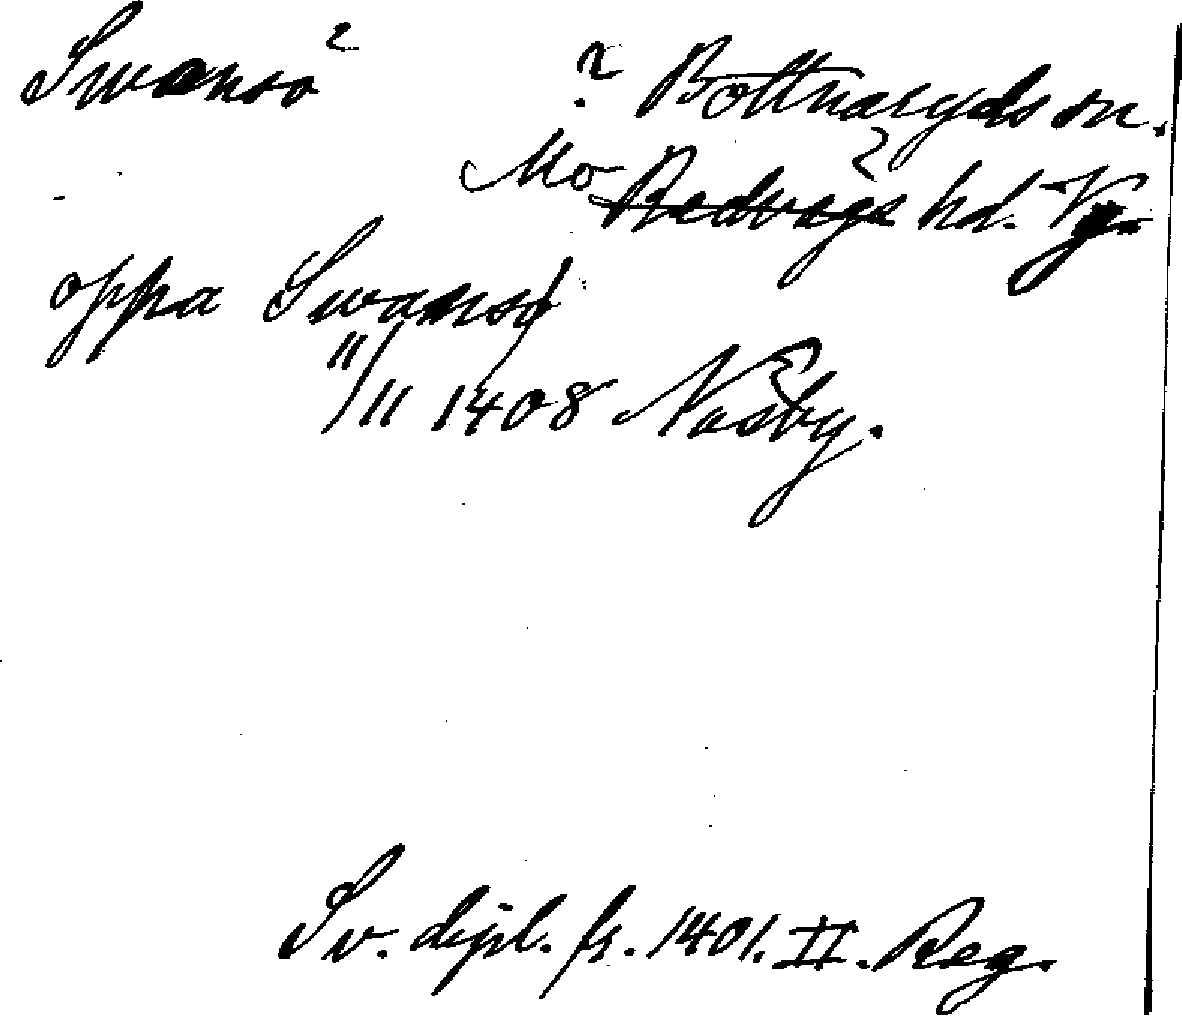 Swansö
? Bottnaryds sn.
Mo Redvägs hd. Vg.
oppa Swansø
11/11 1408 Näsby.
Sv. dipl. fr. 1401. II. Reg.